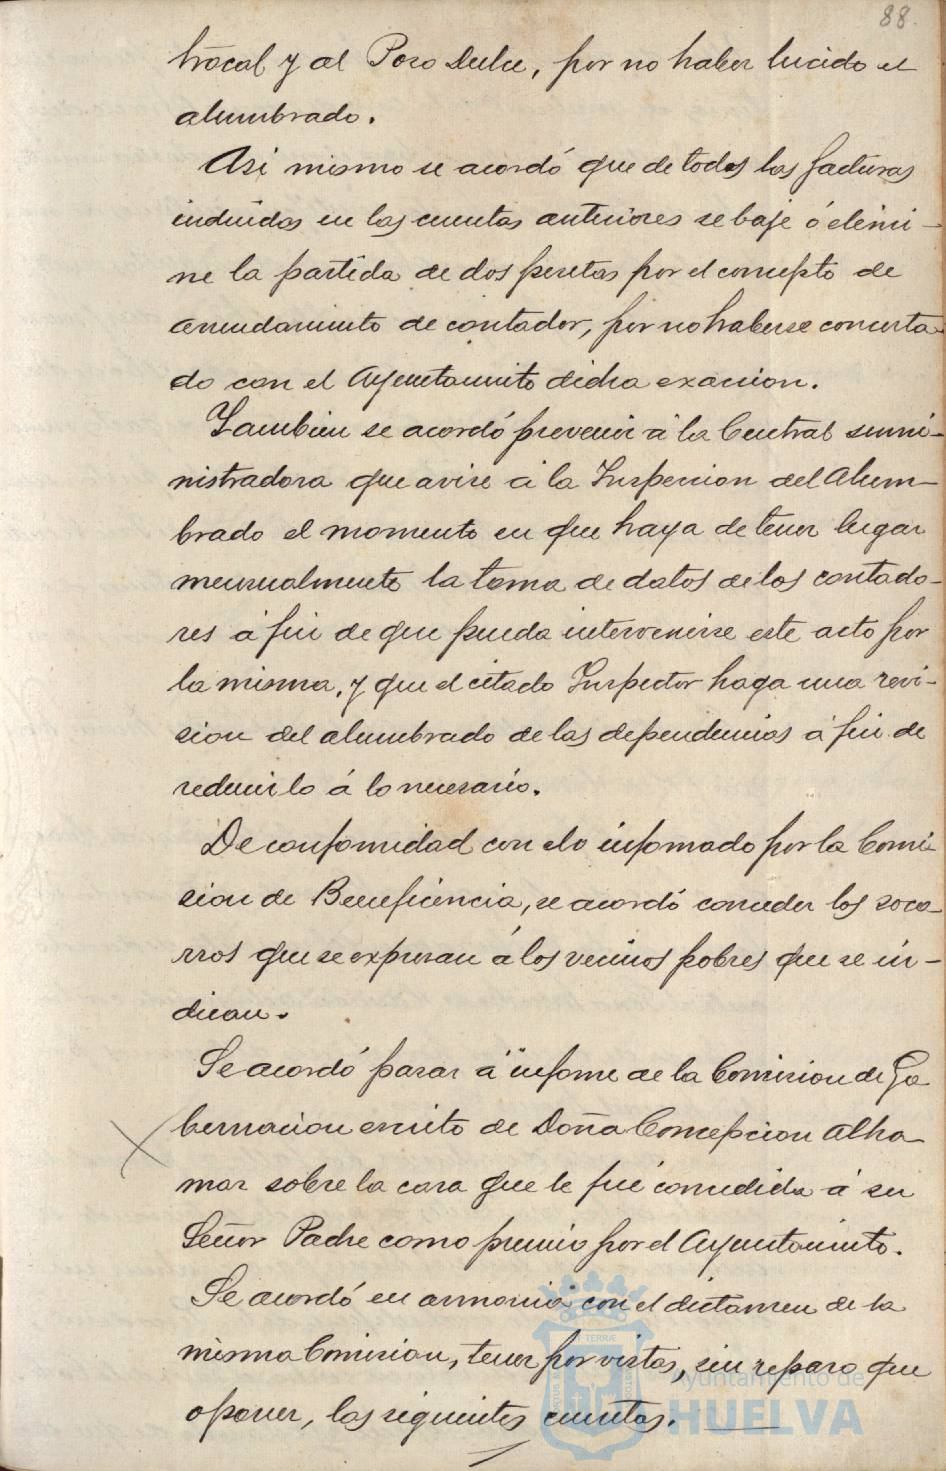 88.
trocal y al Pozo Dulce, por no haber lucido el
alumbrado.
Asi mismo se acordó que de todas las facturas
incluidas en las cuentas anteriores se baje ó elimi-
ne la partida de dos pesetas por el concepto de
arrendamiento de contador, por no haberse concerta-
do con el Ayuntamiento dicha exaccion.
Tambien se acordó prevenir á la Central sumi-
nistradora que avise á la Inspeccion del Alum-
brado el momento en que haya de tener lugar
mensualmente la toma de datos de los contado-
res á fin de que pueda intervenirse este acto por
la misma, y que el citado Inspector haga una revi-
sion del alumbrado de las dependencias á fin de
reducirlo á lo necesario.
De conformidad con lo informado por la Comi-
sion de Beneficencia, se acordó conceder los soco-
rros que se expresan á los vecinos pobres que se in-
dican.
Se acordó pasar á informe de la Comision de Go
bernacion escrito de Doña Concepcion Alha-
mar sobre la casa que le fué concedida á su
Señor Padre como premio por el Ayuntamiento.
Se acordó en armonia con el dictamen de la
misma Comision, tener por vistas, sin reparo que
oponer, las siguientes cuentas.
Ayuntamiento de
HUELVA